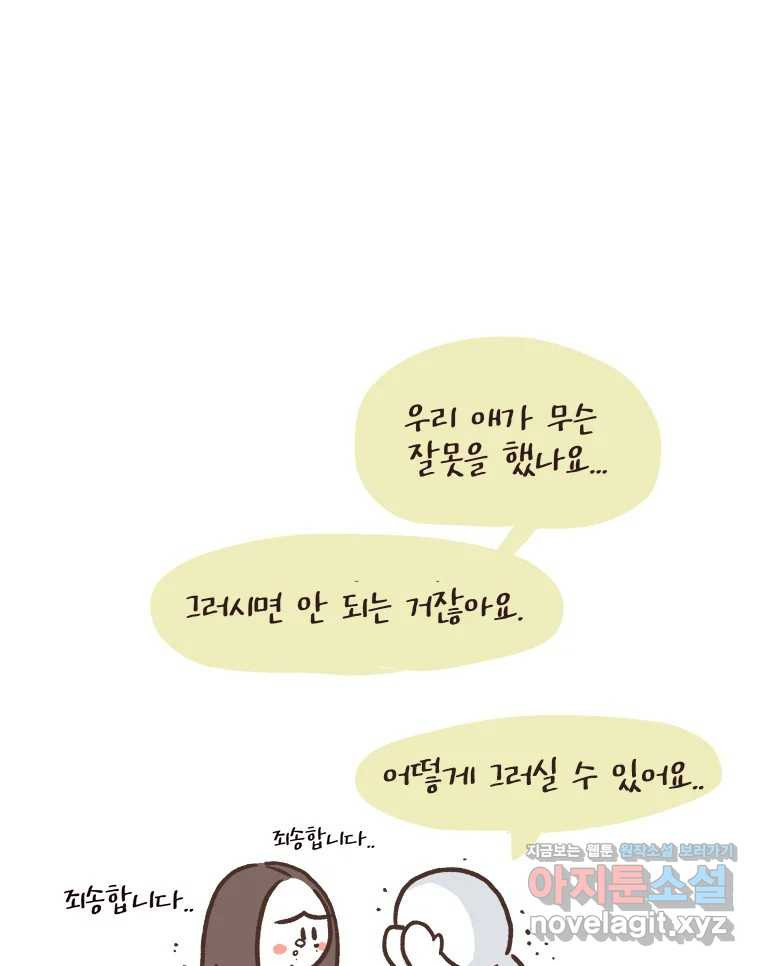 우리 애가 무슨
잘못을 했나요...
그러시면 안 되는 거잖아요.
어떻게 그러실 수 있어요..
죄송합니다..
죄송합니다..
지금보는 웹툰 원작소설 보러가기
아지툰소설
novelagit.xyz